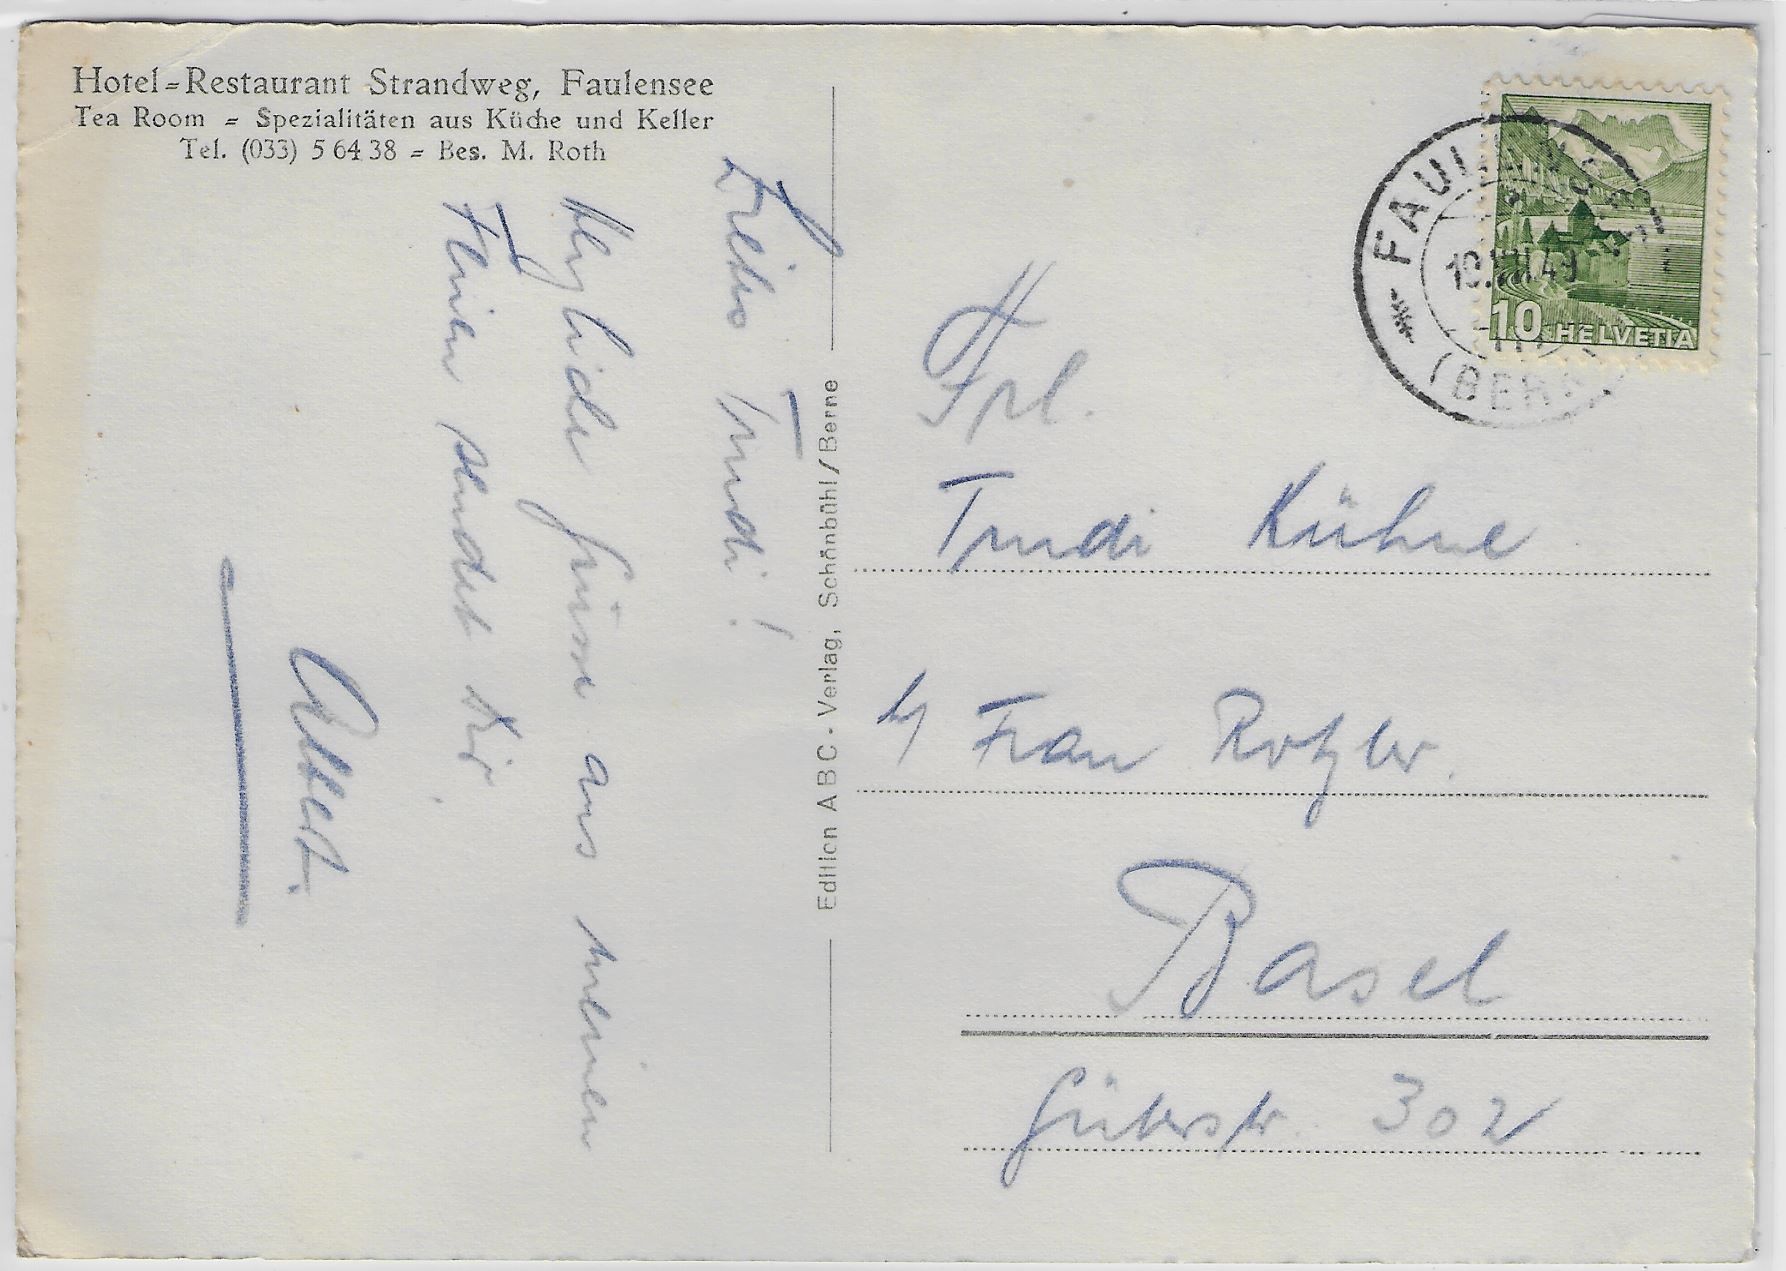 Hotel-Restaurant Strandweg, Faulensee
Tea Room - Spezialitäten aus Küche und Keller
Tel. (033) 5 64 38 - Bes. M. Roth
Liebes Trudi!
Herzliche Grüsse aus meinen
Ferien sendet dir
Albert.
Edition ABC-Verlag, Schönbühl/Berne
FAULENSEE
10.VII.49
(BERN)
10 HELVETIA
Frl.
Trudi Kühne
b/ Frau Rotzler.
Basel
Güterstr. 302